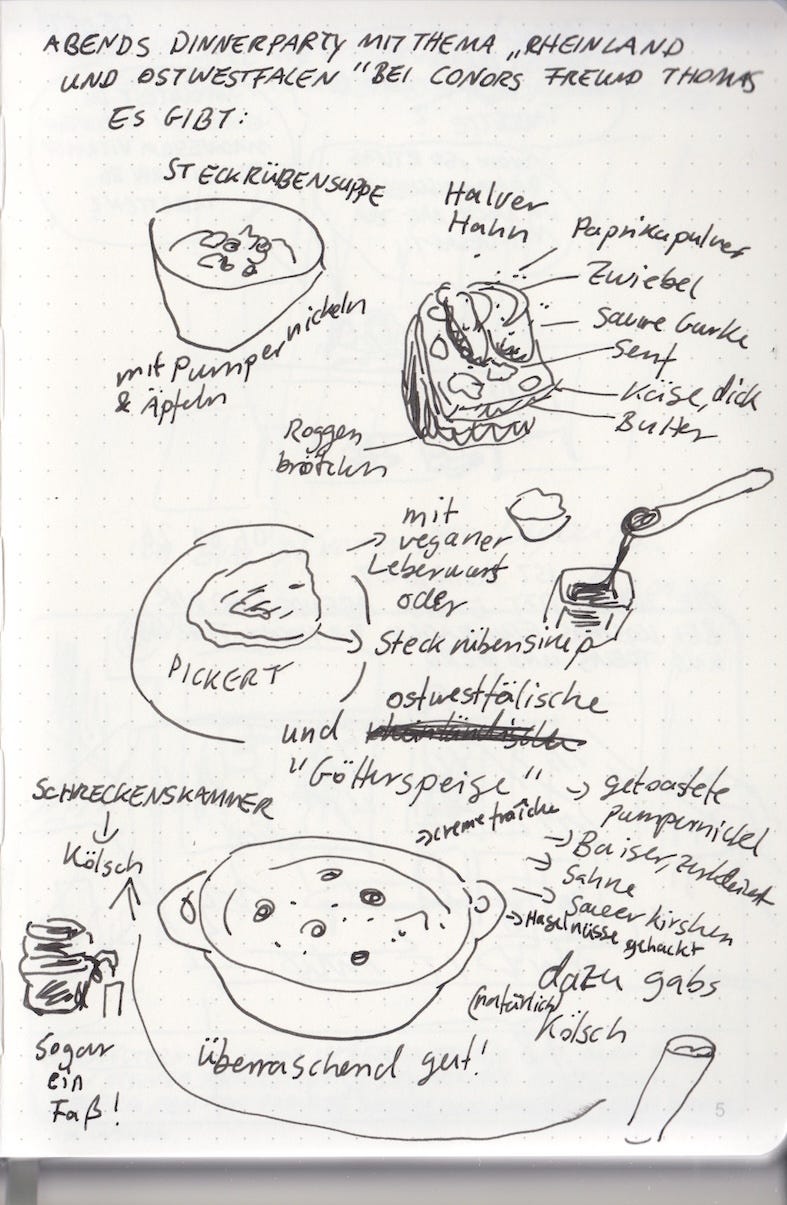 ABENDS DINNERPARTY MIT THEMA „RHEINLAND
UND OSTWESTFALEN" BEI CONORS FREUND THOMAS
ES GIBT:
STECKRÜBENSUPPE
mit Pumpernickeln
& Äpfeln
Halver
Hahn
Paprikapulver
Zwiebel
Saure Gurke
Senf
Käse, dick
Butter
Roggen
brötchen
PICKERT
mit
veganer
Leberwurst
oder
Steckrübensirup
und
ostwestfälische
rheinländische
"Götterspeise"
→ getoastete
Pumpernickel
→ creme fraîche
→ Baiser, zerkleinert
→ Sahne
→ Sauerkirschen
→ Haselnüsse gehackt
SCHRECKENSKAMMER
↓
Kölsch
Sogar
ein
Faß!
Überraschend gut!
dazu gabs
(natürlich)
Kölsch
5